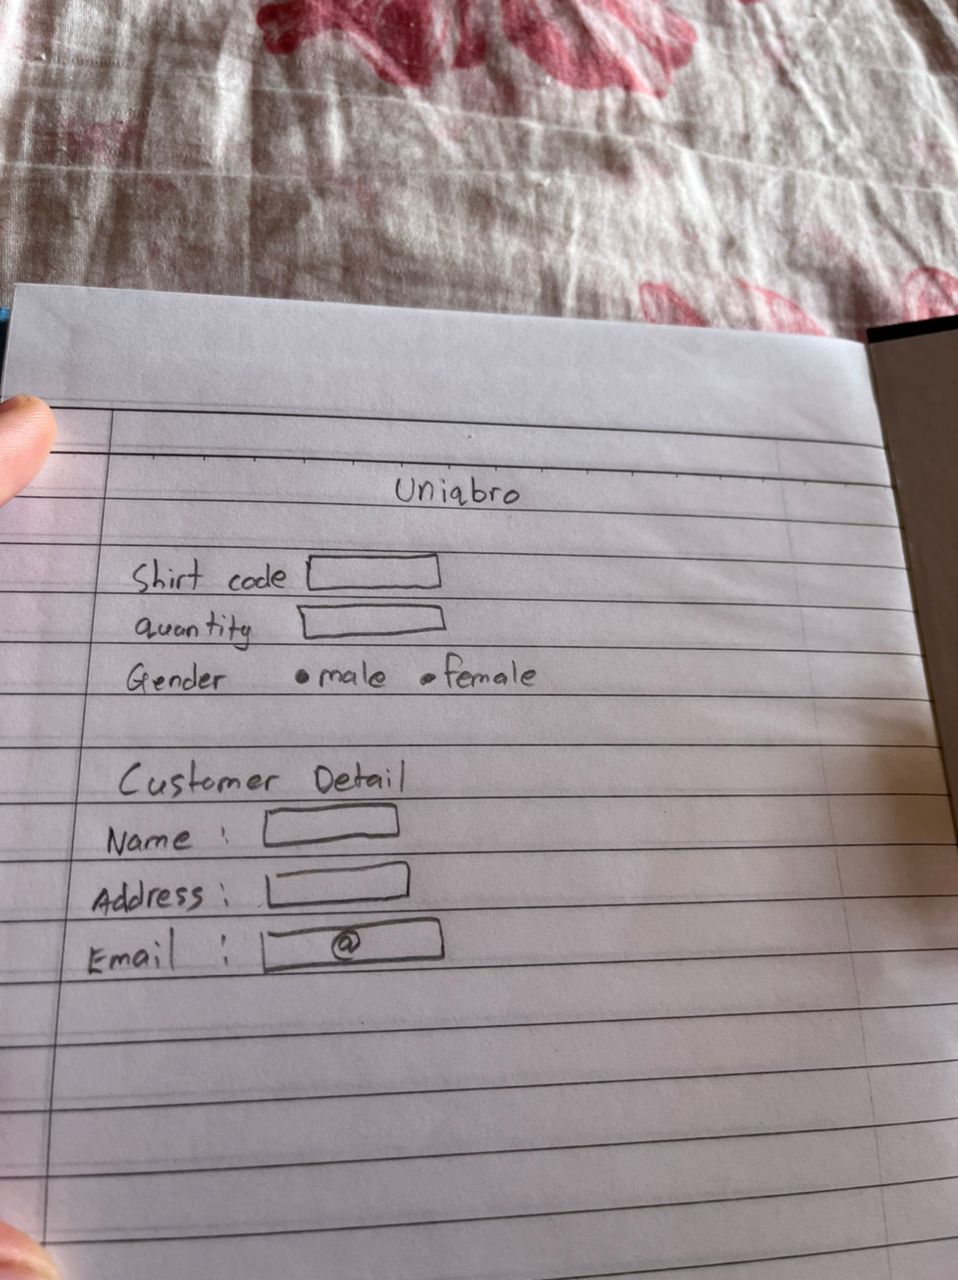 Uniqbro
Shirt code
quantity
Gender • male • female
Customer Detail
Name :
Address :
Email : @